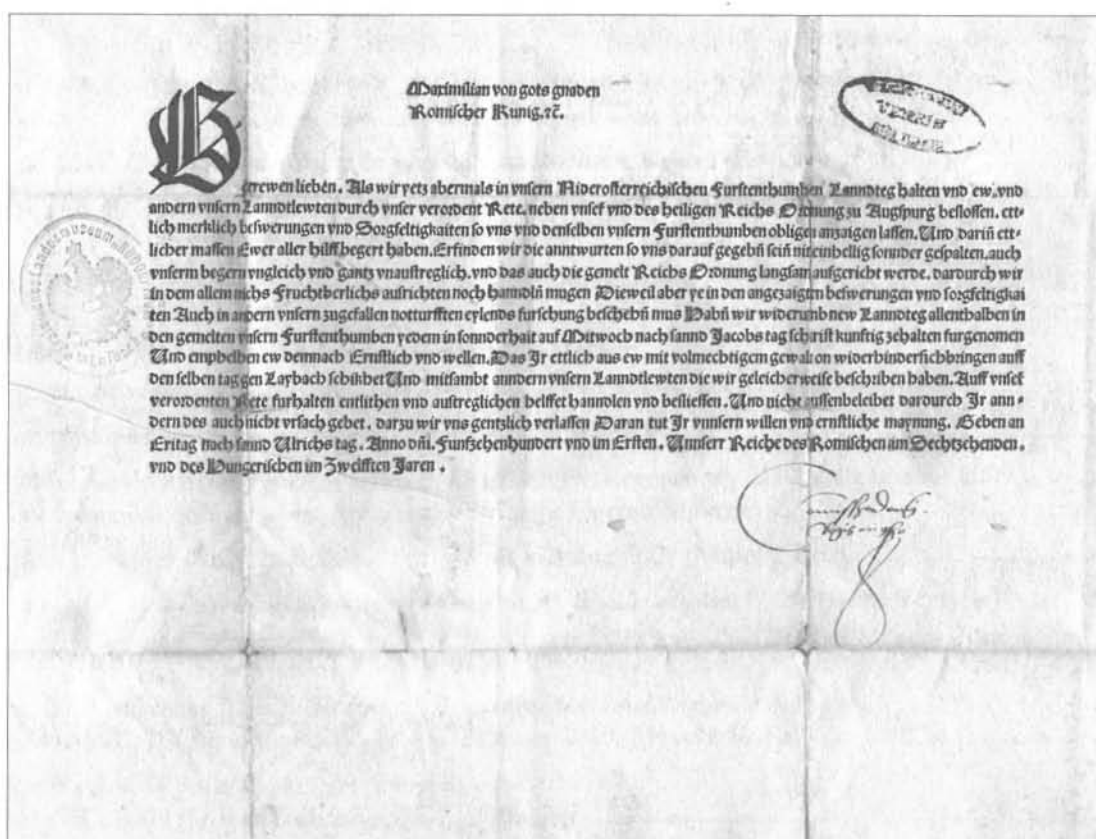 Maximilian von gots gnaden
Romischer Kunig.ꝛc̃.
Getrewen lieben. Als wir yetz abermals in vnsern Niderosterreichischen Furstenthumben Lanndteg halten vnd ew, vnd
andern vnsern Lanndtlewten durch vnser verordent Rete, neben vnser vnd des heiligen Reichs Ordnung zu Augspurg beslossen, ett-
lich merklich beswerungen vnd Sorgfeltigkaiten so vns vnd denselben vnsern Furstenthumben obligen anzaigen lassen. Vnd dariñ ett-
licher massen Ewer aller hilff begert haben. Erfinden wir die anntwurten so vns darauf gegebñ sein nit einhellig sonnder gespalten, auch
vnserm begern vngleich vnd gantz vnaustreglich, vnd das auch die gemelt Reichs Ordnung langsam aufgericht werde, dardurch wir
in dem allem nichs Fruchtberlichs aufrichten noch hanndlñ mugen Dieweil aber ye in den angezaigten beswerungen vnd sorgfeltigkai
ten Auch in andern vnsern zugefallen notturfften eylends fursehung beschehñ mus Habñ wir widerumb new Lanndteg allenthalben in
den gemelten vnsern Furstenthumben yedem in sonnderhait auf Mitwoch nach sannd Jacobs tag schirist kunftig zehalten furgenomen
Vnd emphelhen ew demnach Ernstlich vnd wellen, Das Jr ettlich aus ew mit volmechtigem gewalt on widerhindersichbringen auff
den selben tag gen Laybach schikhet Vnd mitsambt anndern vnsern Lanndtlewten die wir geleicherweise beschriben haben, Auff vnser
verordenten Rete furhalten entlichen vnd austreglichen helffet hanndlen vnd besliessen. Vnd nicht aussenbeleibet dardurch Jr ann-
dern des auch nicht vrsach gebet, darzu wir vns gentzlich verlassen Daran tut Jr vnnsern willen vnd ernstliche maynung. Geben an
Eritag nach sannd Vlrichs tag. Anno dñi. Funfzehenhundert vnd im Ersten. Vnnserr Reiche des Romischen am Sechtzehenden,
vnd des Hungerischen im Zwelfften Jaren.